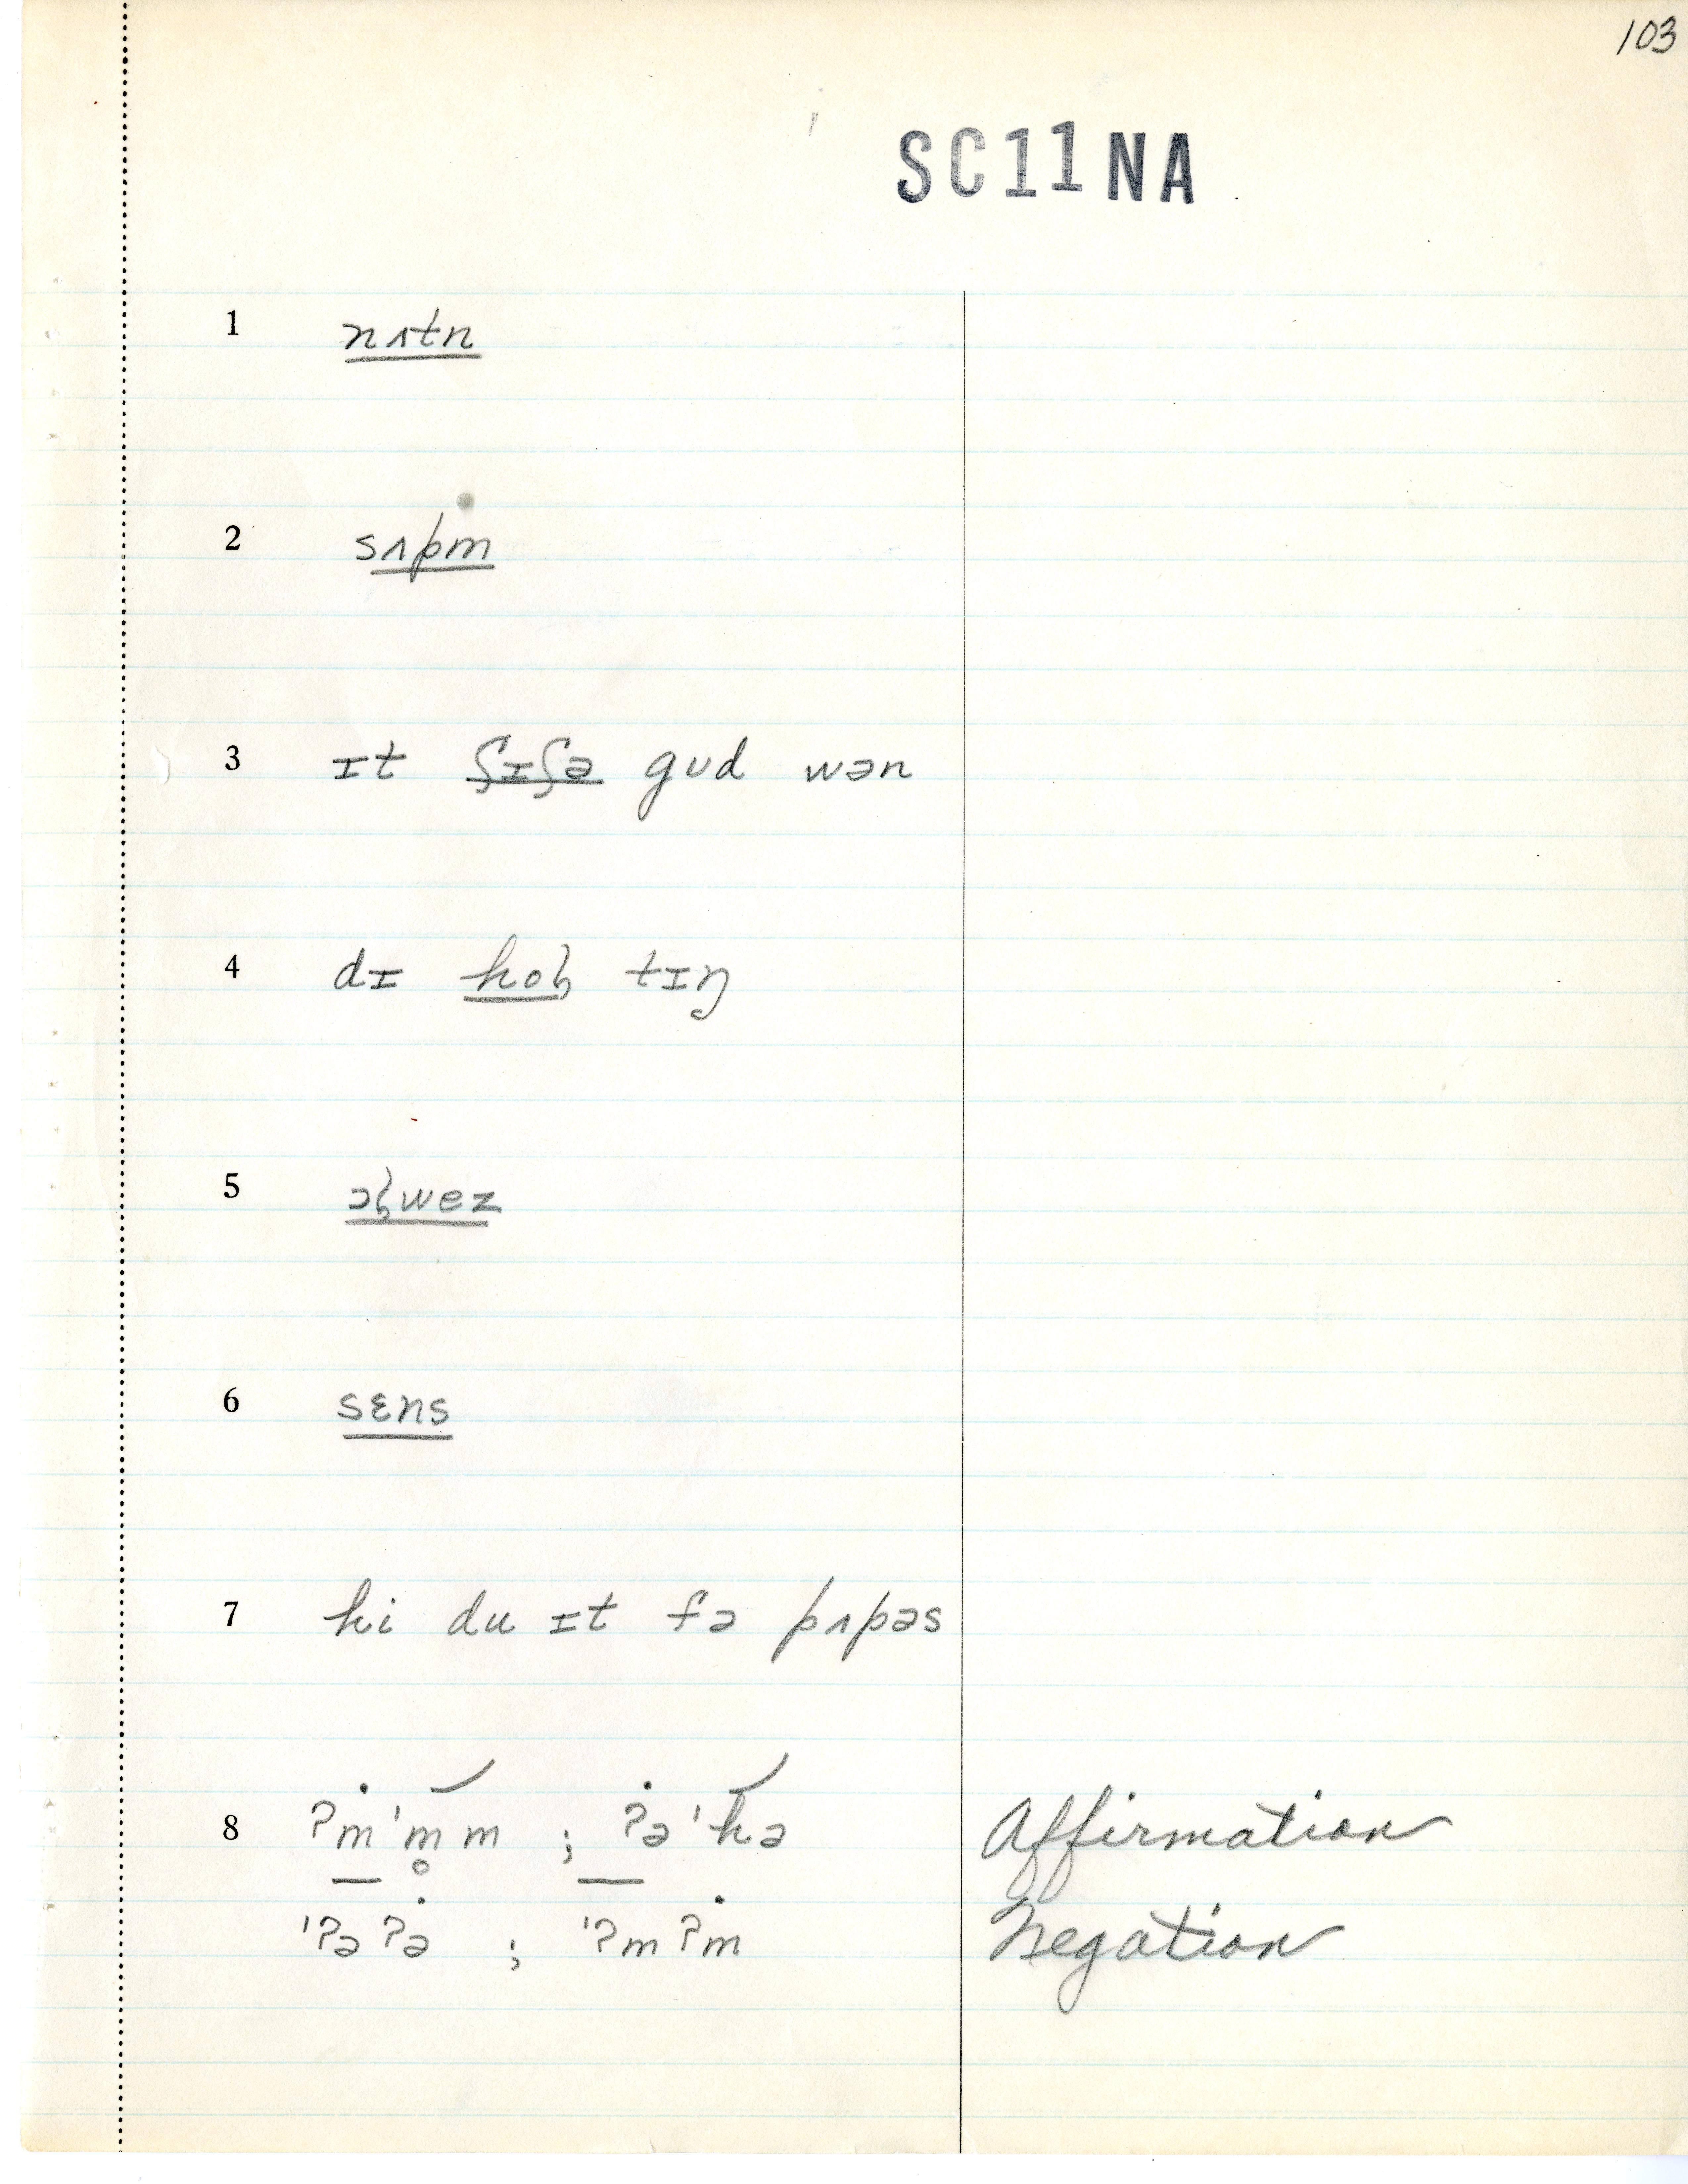 103
SC11NA
1 nʌtn
2 sʌpm
3 ɪt ʂɪʂə gud wən
4 dɪ hoɮ tɪŋ
5 ɔɮwez
6 sɛns
7 hi du ɪt fə pʌpəs
8 ʔm'm̥m ; ʔə'hə Affirmation
'ʔəʔə ; 'ʔmʔm Negation